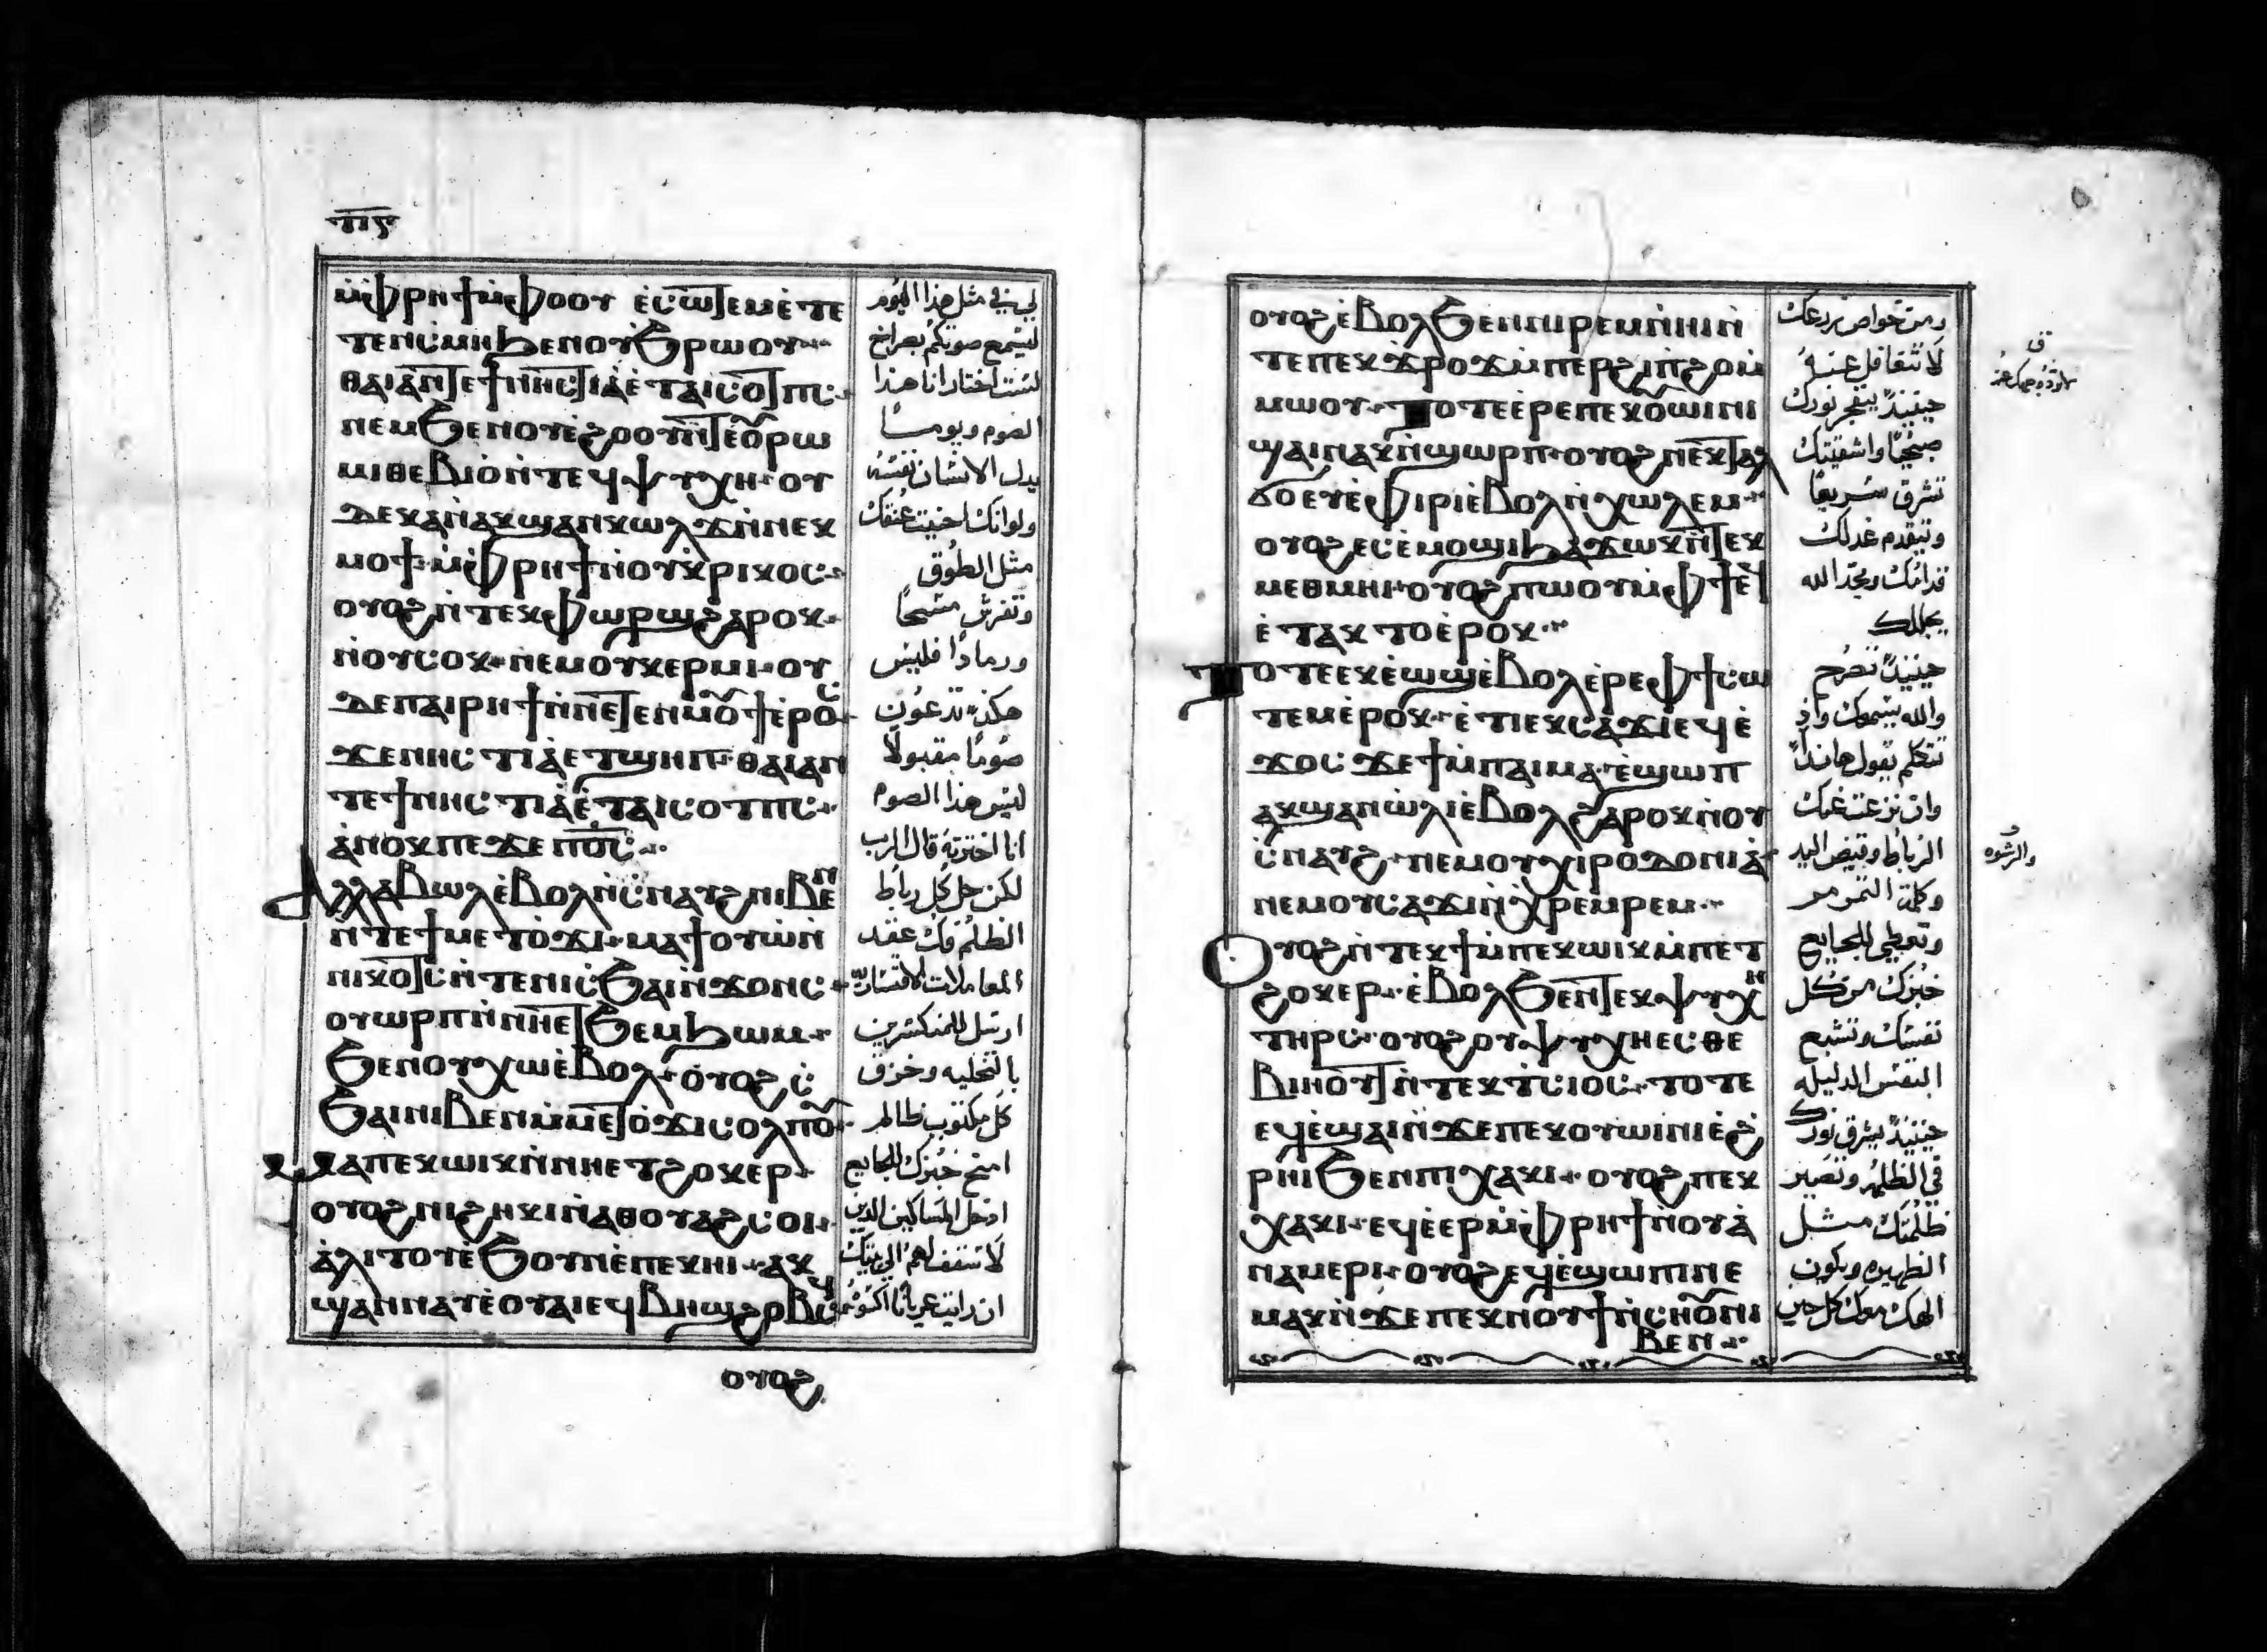 ⲡⲓⲋ
ⲙ̀ⲫⲣⲏϯ ⲙ̀ⲫⲟⲟⲩ ⲉ̀ⲥⲱⲧⲉⲙ ⲉ̀ⲧⲉ
ⲧⲉⲛⲥⲙⲏ ϧⲉⲛ ⲟⲩϧⲣⲱⲟⲩ
ⲑⲁⲓ ⲁⲛ ⲧⲉ ϯⲛⲏⲥⲧⲓⲁ̀ ⲉ̀ⲧⲁⲓⲥⲟⲧⲡⲥ
ⲛⲉⲙ ϧⲉⲛ ⲟⲩⲉ̀ϩⲟⲟⲩ ⲛ̀ⲧⲉ ⲟ̀ⲣⲱ
ⲙⲓ ⲑⲉⲃⲓⲟ̀ ⲛ̀ⲧⲉϥⲯⲩⲭⲏ ⲟⲩ
ⲇⲉ ⲕⲁⲛ ⲁⲕϣⲁⲛⲕⲱⲗϫ ⲛ̀ⲛⲉⲕ
ⲙⲟϯ ⲙ̀ⲫⲣⲏϯ ⲛ̀ⲟⲩⲕ̀ⲣⲓⲕⲟⲥ
ⲟⲩⲟϩ ⲛ̀ⲧⲉⲕⲫⲱⲣϣ ϩⲁⲣⲟⲕ
ⲛ̀ⲟⲩⲥⲟⲕ ⲛⲉⲙ ⲟⲩⲕⲉⲣⲙⲓ ⲟⲩ
ⲇⲉ ⲡⲁⲓⲣⲏϯ ⲛ̀ⲛⲉⲧⲉⲛⲙⲟⲩϯ ⲉ̀ⲣⲟⲥ
ϫⲉ ⲛⲏⲥⲧⲓⲁ̀ ⲉⲧϣⲏⲡ ⲑⲁⲓ ⲁⲛ
ⲧⲉ ϯⲛⲏⲥⲧⲓⲁ̀ ⲉ̀ⲧⲁⲓⲥⲟⲧⲡⲥ
ⲁ̀ⲛⲟⲕ ⲡⲉϫⲉ ⲡⲟ̅ⲥ̅
Ⲁⲗⲗⲁ ⲃⲱⲗ ⲉ̀ⲃⲟⲗ ⲛ̀ⲥⲛⲁⲩϩ ⲛⲓⲃⲉⲛ
ⲛ̀ⲧⲉ ϯⲙⲉⲧⲟ̀ϫⲓ ⲙⲁϯⲟⲩⲱ ⲛ̀
ⲛⲓⲕⲟⲧⲥ ⲛ̀ⲧⲉ ⲛⲓⲥϧⲁⲓ ⲛ̀ϫⲟⲛⲥ
ⲟⲩⲱⲣⲡ ⲛ̀ⲛⲏⲉⲧϧⲉⲙϧⲱⲙ
ϧⲉⲛ ⲟⲩⲭⲱ ⲉ̀ⲃⲟⲗ ⲟⲩⲟϩ ⲥ
ϧⲁⲓ ⲛⲓⲃⲉⲛ ⲙ̀ⲙⲉⲧⲟ̀ϫⲓ ⲥⲟⲗⲡⲟⲩ
Ⲙⲁ ⲡⲉⲕⲱⲓⲕ ⲛ̀ⲛⲏⲉⲧϩⲟⲕⲉⲣ
ⲟⲩⲟϩ ⲛⲓϩⲏⲕⲓ ⲛ̀ⲁⲑⲟⲩⲁϩⲥⲟⲓ
ⲁ̀ⲗⲓⲧⲟⲩ ⲉ̀ϧⲟⲩⲛ ⲉ̀ⲡⲉⲕⲏⲓ ⲁⲕ
ϣⲁⲛⲛⲁⲩ ⲉ̀ⲟⲩⲁⲓ ⲉϥⲃⲏϣ ϩⲟⲃⲥϥ
ⲟⲩⲟϩ
في مثل هذا اليوم
ليسمع صوتكم بصراخ
لست اختار انا هذا
الصوم ويوما
يدل الانسان نفسه
ولو انك احنيت عنقك
مثل الطوق
وتفرش مسحًا
ورمادًا فليس
هكذا تدعون
صومًا مقبولًا
ليس هذا الصوم
انا اخترته قال الرب
لكن حل كل رباط
الظلم وفك عقد
المعاملات
ارسل للمنكسرين
بالتخليه وخزق
كل مكتوب ظالم
امنح خبزك للجايع
ادخل المساكين الذين
لا سقف لهم الى بيتك
ان رايت عريانًا اكسوه
ⲟⲩⲟϩ ⲉ̀ⲃⲟⲗ ϧⲉⲛ ⲛⲓⲣⲉⲙⲛ̀ⲏⲓ ⲛ̀
ⲧⲉ ⲡⲉⲕϫ̀ⲣⲟϫ ⲙ̀ⲡⲉⲣϩⲓⲡϩⲟ ⲙ̀
ⲙⲱⲟⲩ Ⲧⲟⲧⲉ ⲉ̀ⲣⲉ ⲡⲉⲕⲟⲩⲱⲓⲛⲓ
ϣⲁⲓ ⲛⲁⲕ ⲛ̀ϣⲱⲣⲡ ⲟⲩⲟϩ ⲛⲉⲕⲧⲁⲗ
ϭⲟ ⲉⲩⲉ̀ⲫⲓⲣⲓ ⲉ̀ⲃⲟⲗ ⲛ̀ⲭⲱⲗⲉⲙ
ⲟⲩⲟϩ ⲉⲥⲉ̀ⲙⲟϣⲓ ϧⲁϫⲱⲕ ⲛ̀ⲧⲉⲕ
ⲙⲉⲑⲙⲏⲓ ⲟⲩⲟϩ ⲡⲱⲟⲩ ⲙ̀ⲫϯ ⲉϥ
ⲉ̀ⲧⲁⲕⲧⲟ ⲉ̀ⲣⲟⲕ
Ⲧⲟⲧⲉ ⲉⲕⲉ̀ⲱϣ ⲉ̀ⲃⲟⲗ ⲉ̀ⲣⲉ ⲫϯ ⲥⲱ
ⲧⲉⲙ ⲉ̀ⲣⲟⲕ ⲉ̀ⲧⲓ ⲉⲕⲥⲁϫⲓ ⲉϥⲉ̀
ϫⲟⲥ ϫⲉ ϯⲙ̀ⲡⲁⲓⲙⲁ ⲉ̀ϣⲱⲡ
ⲁⲕϣⲁⲛⲱ̀ⲗⲓ ⲉ̀ⲃⲟⲗ ϩⲁⲣⲟⲕ ⲛ̀ⲟⲩ
ⲥⲛⲁⲩϩ ⲛⲉⲙ ⲟⲩⲭⲓⲣⲟⲇⲟⲛⲓⲁ̀
ⲛⲉⲙ ⲟⲩⲥⲁϫⲓ ⲛ̀ⲭⲣⲉⲙⲣⲉⲙ
Ⲟⲩⲟϩ ⲛ̀ⲧⲉⲕϯ ⲙ̀ⲡⲉⲕⲱⲓⲕ ⲙ̀ⲡⲉⲧ
ϩⲟⲕⲉⲣ ⲉ̀ⲃⲟⲗ ϧⲉⲛ ⲧⲉⲕⲯⲩⲭⲏ
ⲧⲏⲣⲥ ⲟⲩⲟϩ ⲟⲩⲯⲩⲭⲏ ⲉⲥⲑⲉ
ⲃⲓⲏⲟⲩⲧ ⲛ̀ⲧⲉⲕⲧ̀ⲥⲓⲟⲥ ⲧⲟⲧⲉ
ⲉϥⲉ̀ϣⲁⲓ ⲛ̀ϫⲉ ⲡⲉⲕⲟⲩⲱⲓⲛⲓ ⲉ̀ϩ
ⲣⲏⲓ ϧⲉⲛ ⲡⲓⲭⲁⲕⲓ ⲟⲩⲟϩ ⲡⲉⲕ
ⲭⲁⲕⲓ ⲉϥⲉ̀ⲉⲣ ⲙ̀ⲫⲣⲏϯ ⲛ̀ⲟⲩⲁ̀
ⲛⲁⲙⲉⲣⲓ ⲟⲩⲟϩ ⲉϥⲉ̀ϣⲱⲡⲓ ⲛⲉ
ⲙⲁⲕ ⲛ̀ϫⲉ ⲡⲉⲕⲛⲟⲩϯ ⲛ̀ⲥⲛⲟⲩ ⲛⲓ
ⲃⲉⲛ
ومن خواص زرعك
لا تتغافل عنه
حينيذً ينفجر نورك
صبحًا واشفيتك
تشرق سريعًا
ويتقدم عدلك
قدامك ومجد الله
يجللك
حينيذً تصرخ
والله يسمعك واذ
تتكلم يقول هانذا
وان نزعت عنك
الرباط وقبض اليد
وكلمة التمرمر
وتعطي للجايع
خبزك من كل
نفسك وتشبع
النفس الذليله
حينيذً يشرق نورك
في الظلمه وتصير
ظلمتك مثل
الظهيره ويكون
الهك معك كل حين
والرشوه